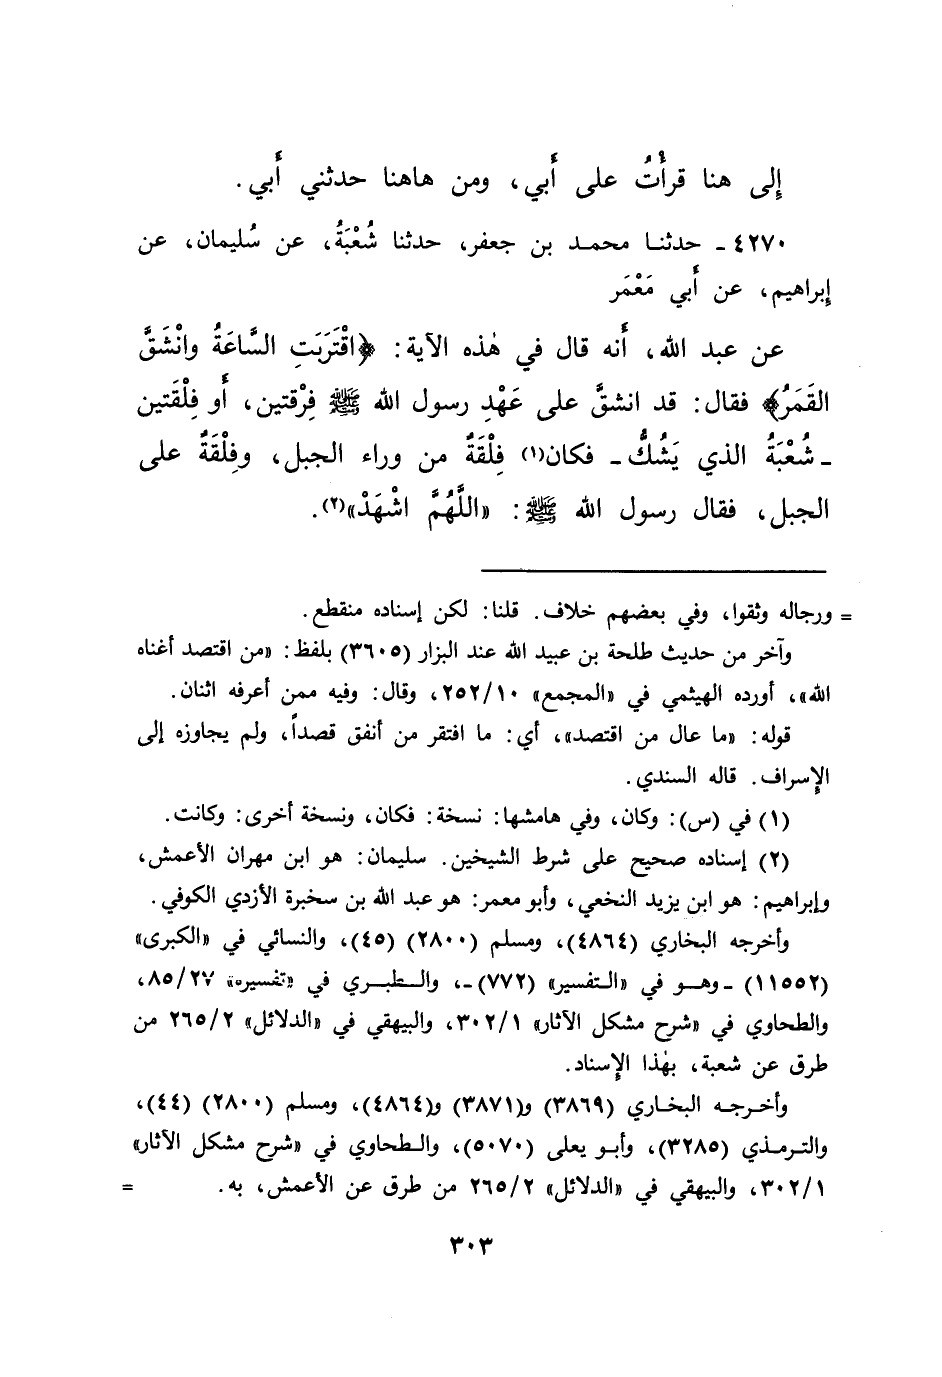 إِلى هنا قرأْتُ على أَبي، ومن هاهنا حدثني أَبي.
٤٢٧٠ ـ حدثنا محمد بن جعفر، حدثنا شُعْبَةُ، عن سُليمان، عن
إبراهيم، عن أَبي مَعْمَر
عن عبد الله، أَنه قال في هٰذه الآية: ﴿اقْتَرَبَتِ السَّاعَةُ وانْشَقَّ
القَمَرُ﴾ فقال: قد انشقَّ على عَهْدِ رسول الله ﷺ فِرْقتين، أَو فِلْقَتين
ـ شُعْبَةُ الذي يَشُكُّ ـ فكان(١) فِلْقَةٌ من وراء الجبل، وفِلْقَةٌ على
الجبل، فقال رسول الله ﷺ: «اللَّهُمَّ اشْهَدْ»(٢).
= ورجاله وثقوا، وفي بعضهم خلاف. قلنا: لكن إسناده منقطع.
وآخر من حديث طلحة بن عبيد الله عند البزار (٣٦٠٥) بلفظ: «من اقتصد أغناه
الله»، أورده الهيثمي في «المجمع» ٢٥٢/١٠، وقال: وفيه ممن أعرفه اثنان.
قوله: «ما عال من اقتصد»، أي: ما افتقر من أنفق قصداً، ولم يجاوزه إلى
الإسراف. قاله السندي.
(١) في (س): وكان، وفي هامشها: نسخة: فكان، ونسخة أخرى: وكانت.
(٢) إسناده صحيح على شرط الشيخين. سليمان: هو ابن مهران الأعمش،
وإبراهيم: هو ابن يزيد النخعي، وأبو معمر: هو عبد الله بن سخبرة الأزدي الكوفي.
وأخرجه البخاري (٤٨٦٤)، ومسلم (٢٨٠٠) (٤٥)، والنسائي في «الكبرى»
(١١٥٥٢) ـ وهو في «التفسير» (٧٧٢) ـ، والطبري في «تفسيره» ٨٥/٢٧،
والطحاوي في «شرح مشكل الآثار» ٣٠٢/١، والبيهقي في «الدلائل» ٢٦٥/٢ من
طرق عن شعبة، بهٰذا الإسناد.
وأخرجه البخاري (٣٨٦٩) و(٣٨٧١) و(٤٨٦٤)، ومسلم (٢٨٠٠) (٤٤)،
والترمذي (٣٢٨٥)، وأبو يعلى (٥٠٧٠)، والطحاوي في «شرح مشكل الآثار»
٣٠٢/١، والبيهقي في «الدلائل» ٢٦٥/٢ من طرق عن الأعمش، به. =
٣٠٣